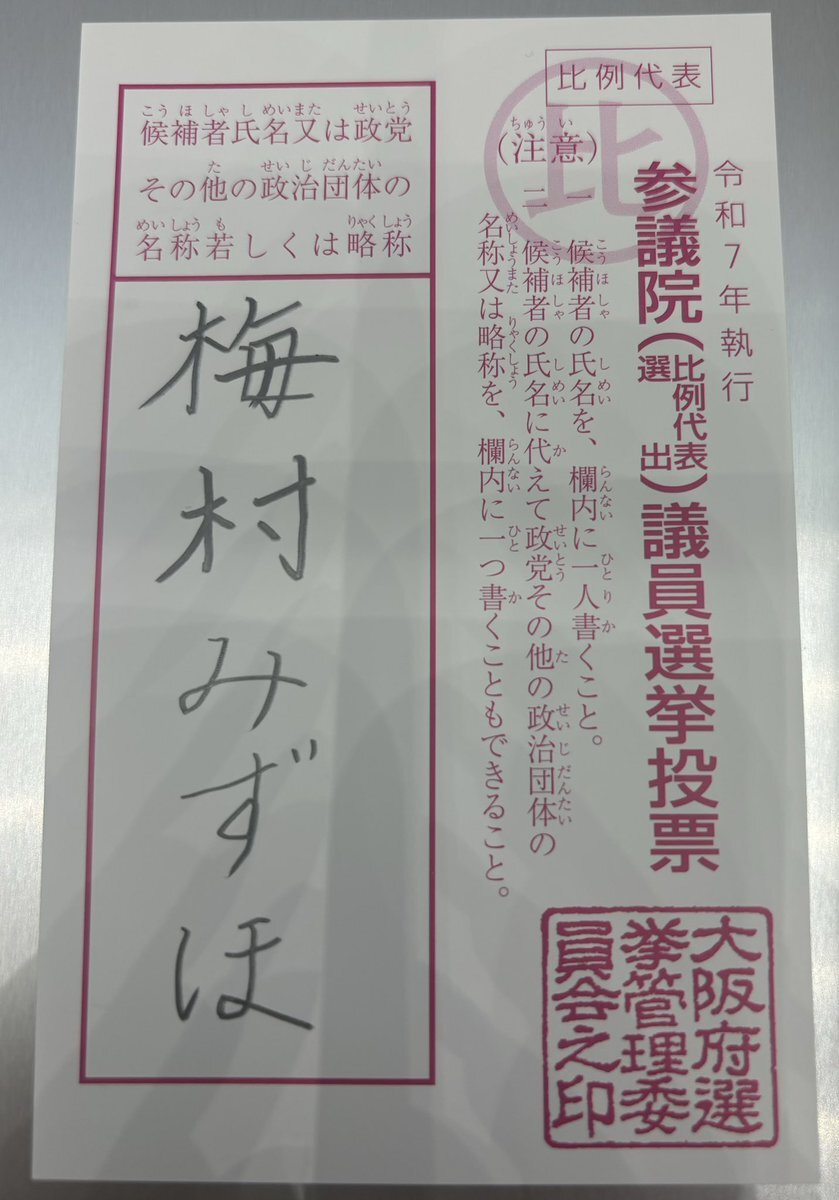 比例代表
比
令和7年執行
参議院(比例代表選出)議員選挙投票
(注意)
一 候補者の氏名を、欄内に一人書くこと。
二 候補者の氏名に代えて政党その他の政治団体の
名称又は略称を、欄内に一つ書くこともできること。
候補者氏名又は政党
その他の政治団体の
名称若しくは略称
梅村みずほ
大阪府選
挙管理委
員会之印